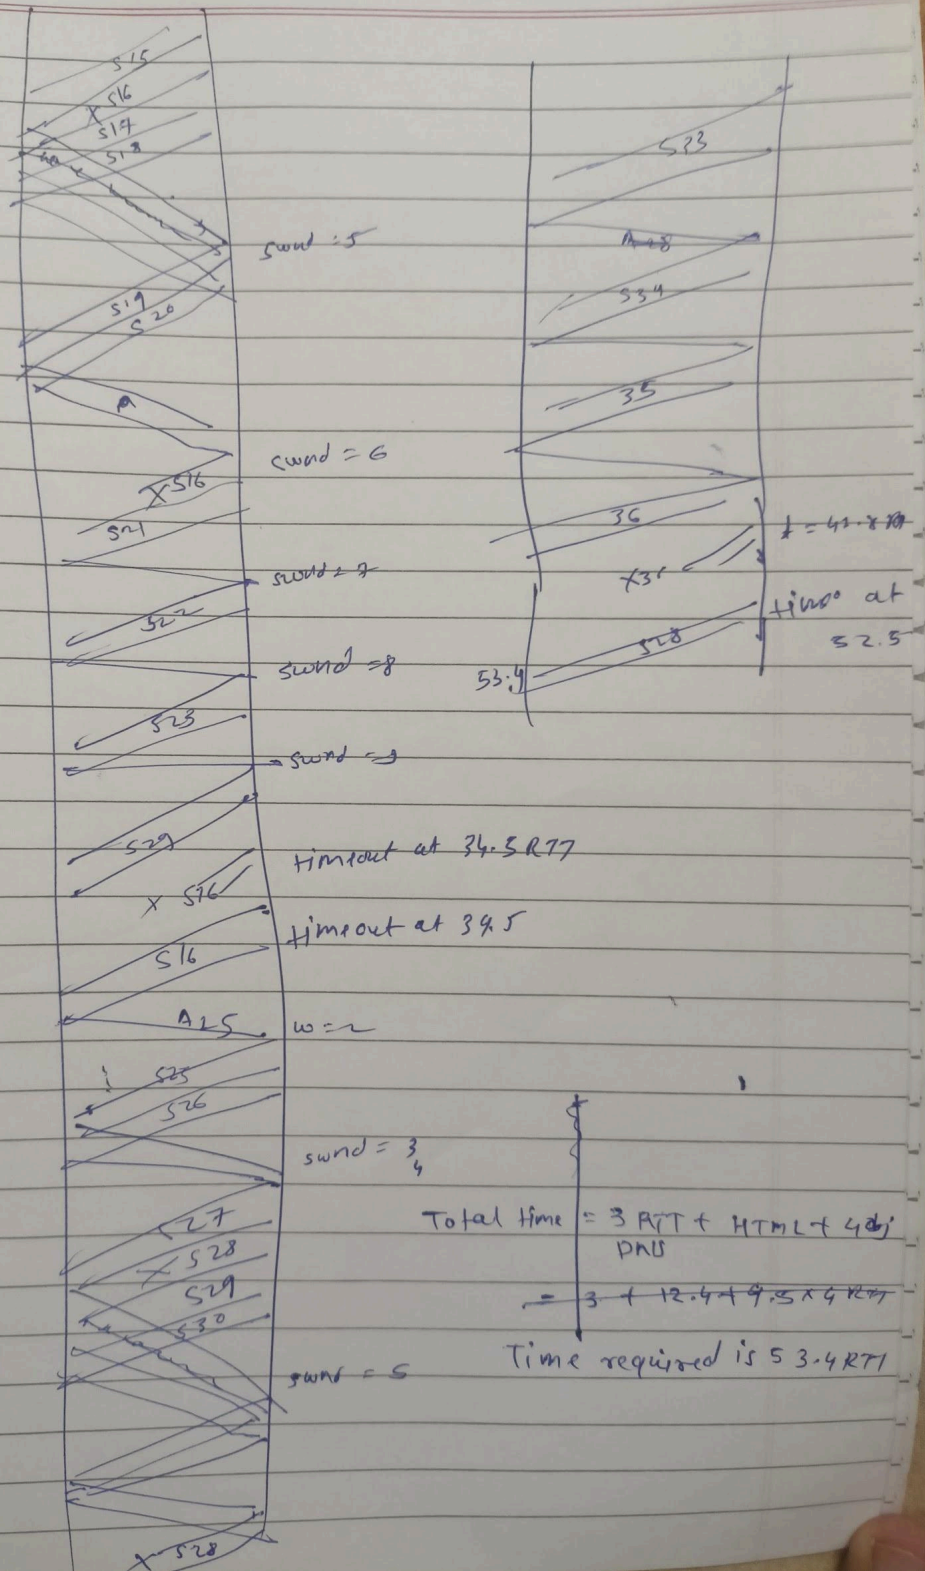 S15
X S16
S17
S18
swnd = 5
S19
S20
A
swnd = 6
X S16
S21
swnd = 7
S22
swnd = 8
S23
swnd = 9
S29
timeout at 34.5 RTT
X S16
timeout at 39.5
S16
A25
w = 2
S25
S26
swnd = 3
4
S27
X S28
S29
S30
swnd = 5
X S28
S33
A28
S34
35
36
X3
timeo at
52.5
S28
53.4
Total time = 3 RTT + HTML + 4 obj
DNS
= 3 + 12.4 + 9.5 x 4 RTT
Time required is 53.4 RTT